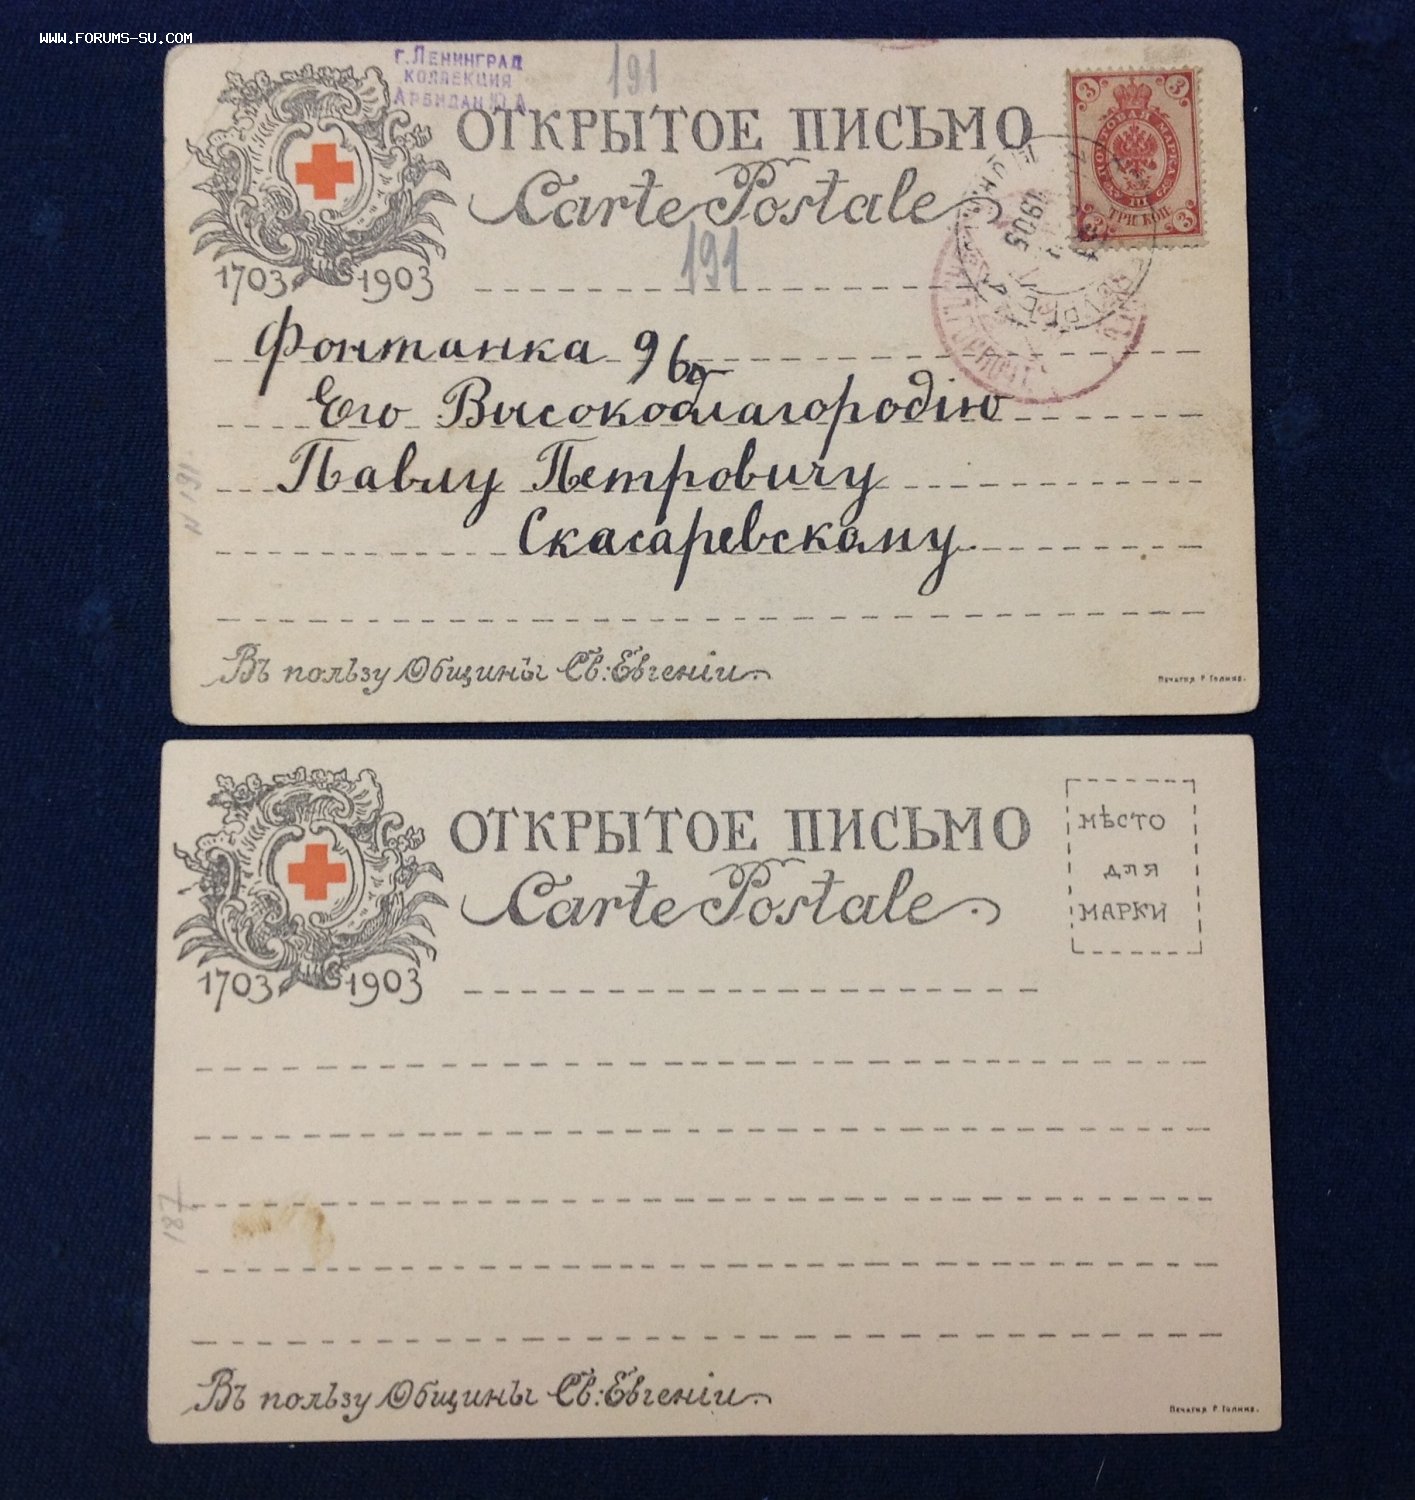 WWW.FORUMS-SU.COM
г. Ленинград
коллекция
Арбидан Ю.А.
191
ОТКРЫТОЕ ПИСЬМО
Carte Postale
191
1703 1903
3 3
ПОЧТОВАЯ МАРКА
ТРИ КОП.
3 3
1905
Фонтанка 96
Его Высокоблагородію
Павлу Петровичу
Скасаревскому
N 191
Въ пользу Общины Св: Евгеніи
Печатня Р. Голике.
ОТКРЫТОЕ ПИСЬМО
Carte Postale
МѢСТО
ДЛЯ
МАРКИ
1703 1903
187
Въ пользу Общины Св: Евгеніи
Печатня Р. Голике.